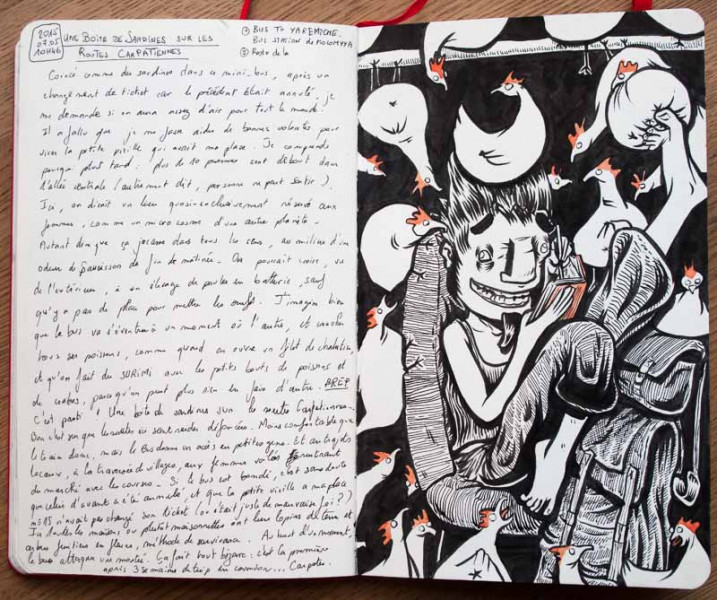 2015
07.05
10H46
UNE BOITE DE SARDINES SUR LES
ROUTES CARPATIENNES
① BUS TO YAREMCHE.
BUS STATION DE KOLOMYYA
② Reste de la
Coincé comme des sardines dans ce mini-bus, après un
changement de ticket car le précédent était annulé, je
me demande si on aura assez d'air pour tout le monde.
Il a fallu que je me fasse aider de bonnes volontés pour
virer la petite vieille qui avait ma place. Je comprends
pourquoi plus tard : plus de 10 personnes sont debout dans
l'allée centrale (autrement dit, personne ne peut sortir).
Ici, on dirait un lieu quasi-exclusivement réservé aux
femmes, comme un microcosme d'une autre planète.
Autant dire que ça jacasse dans tous les sens, au milieu d'une
odeur de saucisson de fin de matinée. On pourrait croire, vu
de l'extérieur, à un élevage de poules en batterie, sauf
qu'y a pas de place pour mettre les oeufs. J'imagine bien
que le bus va s'éventrer à un moment où l'autre, et
tous ses poissons, comme quand on ouvre un filet de chalutier,
et qu'on fait du SURIMI avec les petits bouts de poissons et
de crabes, parce qu'on peut plus rien en faire d'autre. BREF
C'est parti ! Une boîte de sardines sur les routes Carpatiennes.
Moins confortable que
le train donc, mais le bus donne un accès en petites gens. Et au
locaux, à la traversée de villages, aux femmes voilées rentrant
du marché avec les courses. Si le bus est bondé, c'est sans doute
que celui d'avant a été annulé, et que la petite vieille à ma place
n'avait pas changé son ticket (ou était juste de mauvaise foi ?)
Ici toutes les maisons ou plutôt maisonnettes ont leurs lopins de terre et
arbres fruitiers en fleurs, méthode de survivance. Au bout d'un moment,
le bus attaque une montée. Ça fait tout bizarre : c'est la première
après 3 semaines de trip en